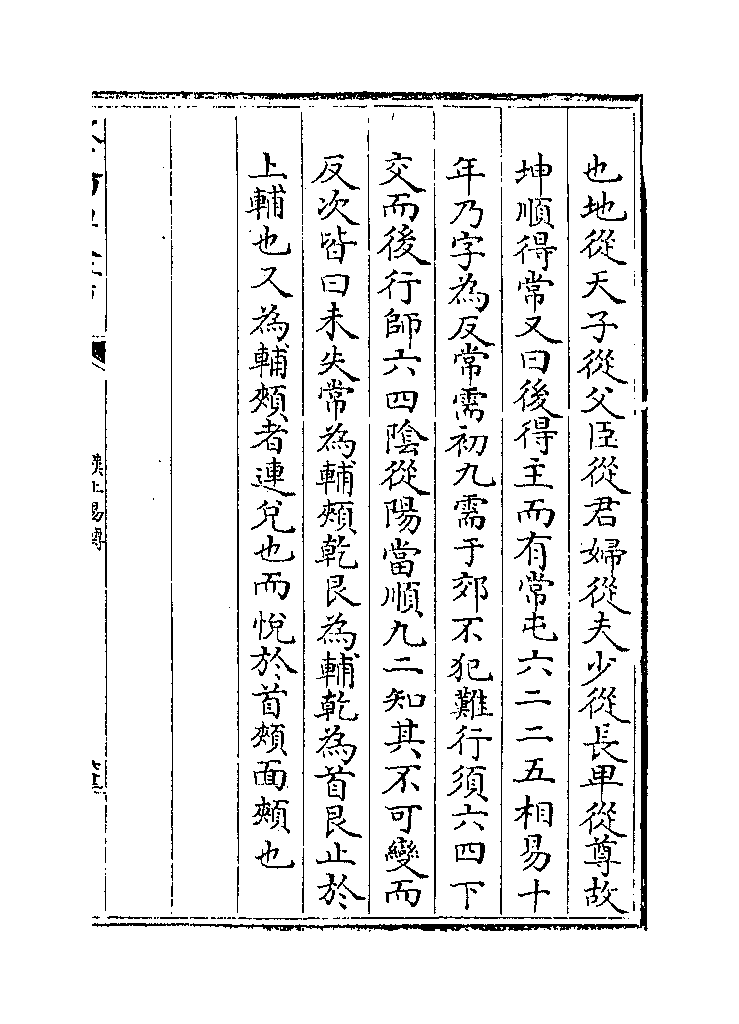 也地從天子從父臣從君婦從夫少從長卑從尊故
坤順得常又曰後得主而有常屯六二二五相易十
年乃字為反常需初九需于郊不犯難行須六四下
交而後行師六四陰從陽當順九二知其不可變而
反次皆曰未失常為輔頰乾艮為輔乾為首艮止於
上輔也又為輔頰者連兌也而悅於首頰面頰也
漢上易傳